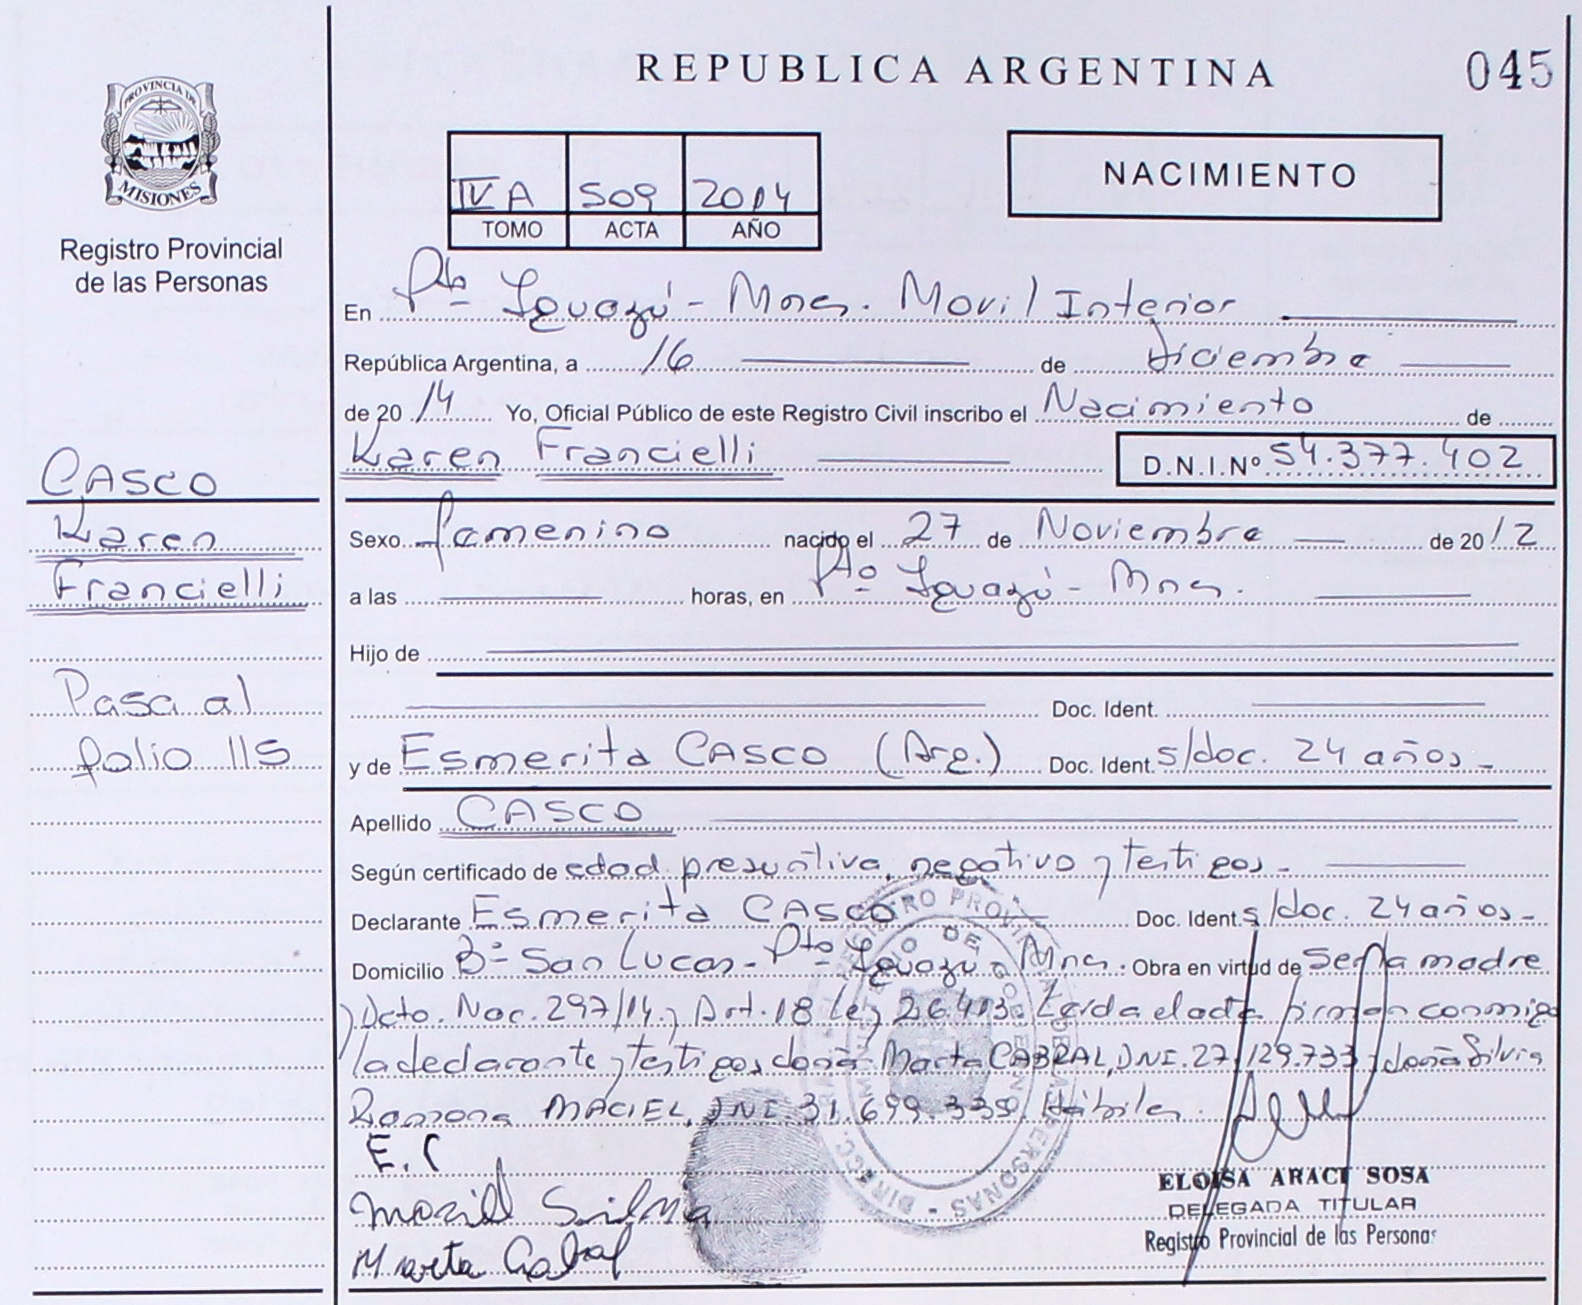 REPUBLICA ARGENTINA
045
PROVINCIA DE
MISIONES
Registro Provincial
de las Personas
IV A 509 2014
TOMO ACTA AÑO
NACIMIENTO
En Pto Iguazú - Mnes. Movil Interior
República Argentina, a 16 de diciembre
de 20 14 Yo, Oficial Público de este Registro Civil inscribo el Nacimiento de
Karen Francielli D.N.I.Nº 54.377.402
CASCO
Karen
Francielli
Pasa al
folio 115
Sexo femenino nacido el 27 de Noviembre de 20 12
a las horas, en Pto Iguazú - Mnes.
Hijo de
Doc. Ident.
y de Esmerita CASCO (Arg.) Doc. Ident. s/doc. 24 años -
Apellido CASCO
Según certificado de edad presuntiva, negativo y testigos -
Declarante Esmerita CASCO Doc. Ident s/doc. 24 años -
Domicilio Bº San Lucas - Pto Iguazú - Mnes. Obra en virtud de ser la madre
y Dcto. Nac. 297/14 y Art. 18 Ley 26.413 Leída el acta firman conmigo
la declarante y testigos doña Marta CABRAL, DNI. 27.129.733 y doña Silvia
Ramona MACIEL, DNI. 31.699.335. Hábiles.
E. C
Maciel Silvia
Marta Cabral
DIRECC. REGISTRO PROVINCIAL DE LAS PERSONAS
MINISTERIO DE GOBIERNO
ELOISA ARACI SOSA
DELEGADA TITULAR
Registro Provincial de las Personas